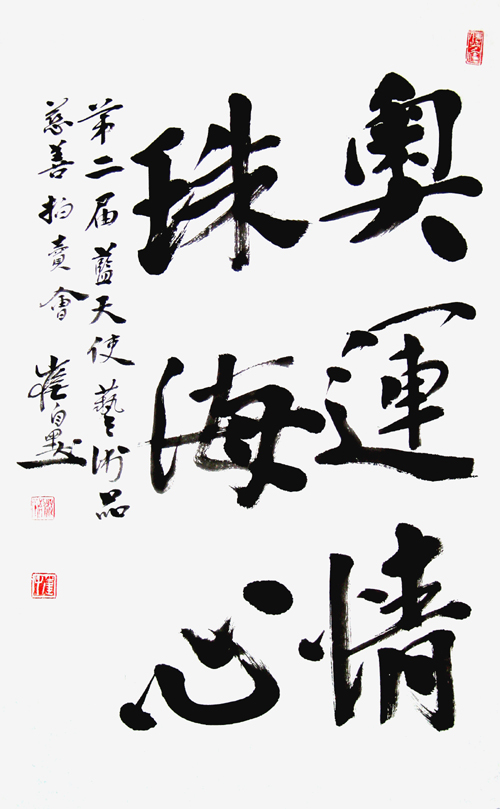 奥運情
珠海心
第二届藍天使藝術品
慈善拍賣會 崔自默